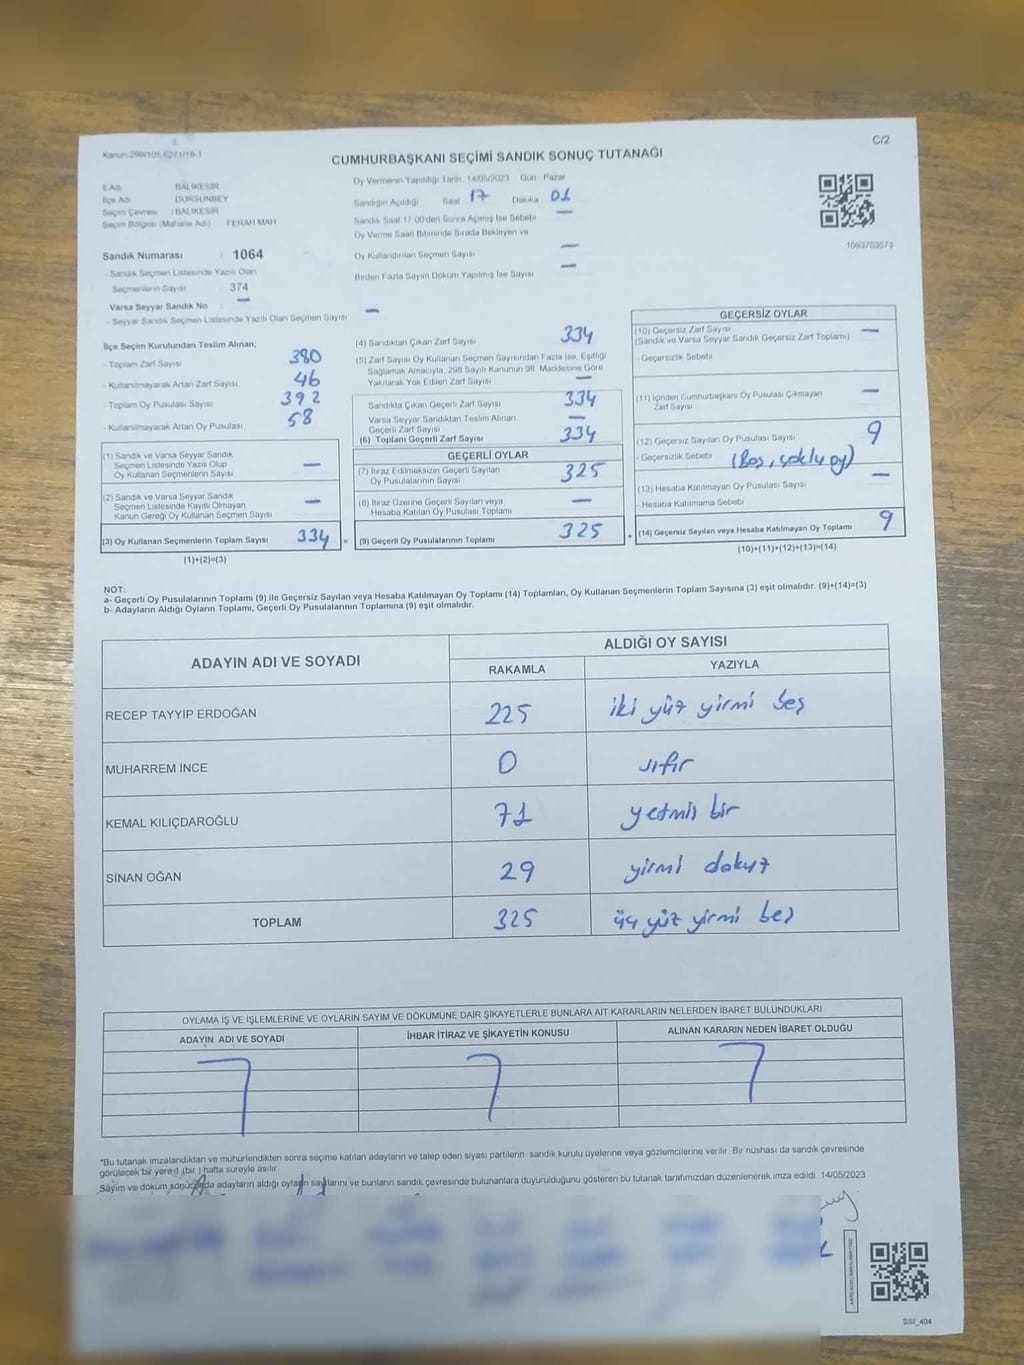 C/2
Kanun:298/105,6271/18-1
CUMHURBAŞKANI SEÇİMİ SANDIK SONUÇ TUTANAĞI
İl Adı : BALIKESİR
İlçe Adı : DURSUNBEY
Seçim Çevresi : BALIKESİR
Seçim Bölgesi (Mahalle Adı) FERAH MAH
Oy Vermenin Yapıldığı Tarih 14/05/2023 Gün Pazar
Sandığın Açıldığı Saat 17 Dakika 01
Sandık Saat 17:00'den Sonra Açılmış İse Sebebi —
Oy Verme Saati Bitiminde Sırada Bekleyen ve
Oy Kullandırılan Seçmen Sayısı —
Birden Fazla Sayım Döküm Yapılmış İse Sayısı —
1093703573
Sandık Numarası : 1064
- Sandık Seçmen Listesinde Yazılı Olan
Seçmenlerin Sayısı : 374
Varsa Seyyar Sandık No : —
- Seyyar Sandık Seçmen Listesinde Yazılı Olan Seçmen Sayısı —
İlçe Seçim Kurulundan Teslim Alınan;
- Toplam Zarf Sayısı 380
- Kullanılmayarak Artan Zarf Sayısı 46
- Toplam Oy Pusulası Sayısı 392
- Kullanılmayarak Artan Oy Pusulası 58
(1) Sandık ve Varsa Seyyar Sandık
Seçmen Listesinde Yazılı Olup
Oy Kullanan Seçmenlerin Sayısı —
(2) Sandık ve Varsa Seyyar Sandık
Seçmen Listesinde Kayıtlı Olmayan
Kanun Gereği Oy Kullanan Seçmen Sayısı —
(3) Oy Kullanan Seçmenlerin Toplam Sayısı 334 =
(1)+(2)=(3)
(4) Sandıktan Çıkan Zarf Sayısı 334
(5) Zarf Sayısı Oy Kullanan Seçmen Sayısından Fazla İse, Eşitliği
Sağlamak Amacıyla, 298 Sayılı Kanunun 98. Maddesine Göre
Yakılarak Yok Edilen Zarf Sayısı —
Sandıkta Çıkan Geçerli Zarf Sayısı 334
Varsa Seyyar Sandıktan Teslim Alınan
Geçerli Zarf Sayısı —
(6) Toplam Geçerli Zarf Sayısı 334
GEÇERLİ OYLAR
(7) İtiraz Edilmeksizin Geçerli Sayılan
Oy Pusulalarının Sayısı 325
(8) İtiraz Üzerine Geçerli Sayılan veya
Hesaba Katılan Oy Pusulası Toplamı —
(9) Geçerli Oy Pusulalarının Toplamı 325 +
GEÇERSİZ OYLAR
(10) Geçersiz Zarf Sayısı —
(Sandık ve Varsa Seyyar Sandık Geçersiz Zarf Toplamı)
- Geçersizlik Sebebi
(11) İçinden Cumhurbaşkanı Oy Pusulası Çıkmayan
Zarf Sayısı —
(12) Geçersiz Sayılan Oy Pusulası Sayısı 9
- Geçersizlik Sebebi (Boş, çoklu oy)
(13) Hesaba Katılmayan Oy Pusulası Sayısı —
- Hesaba Katılmama Sebebi
(14) Geçersiz Sayılan veya Hesaba Katılmayan Oy Toplamı 9
(10)+(11)+(12)+(13)=(14)
NOT:
a- Geçerli Oy Pusulalarının Toplamı (9) ile Geçersiz Sayılan veya Hesaba Katılmayan Oy Toplamı (14) Toplamları, Oy Kullanan Seçmenlerin Toplam Sayısına (3) eşit olmalıdır. (9)+(14)=(3)
b- Adayların Aldığı Oyların Toplamı, Geçerli Oy Pusulalarının Toplamına (9) eşit olmalıdır.
ADAYIN ADI VE SOYADI
ALDIĞI OY SAYISI
RAKAMLA YAZIYLA
RECEP TAYYİP ERDOĞAN 225 iki yüz yirmi beş
MUHARREM İNCE 0 sıfır
KEMAL KILIÇDAROĞLU 71 yetmiş bir
SİNAN OĞAN 29 yirmi dokuz
TOPLAM 325 üç yüz yirmi beş
OYLAMA İŞ VE İŞLEMLERİNE VE OYLARIN SAYIM VE DÖKÜMÜNE DAİR ŞİKAYETLERLE BUNLARA AİT KARARLARIN NELERDEN İBARET BULUNDUKLARI
ADAYIN ADI VE SOYADI İHBAR İTİRAZ VE ŞİKAYETİN KONUSU ALINAN KARARIN NEDEN İBARET OLDUĞU
*Bu tutanak imzalandıktan ve mühürlendikten sonra seçime katılan adayların ve talep eden siyasi partilerin sandık kurulu üyelerine veya gözlemcilerine verilir. Bir nüshası da sandık çevresinde
görülecek bir yere 1 (bir ) hafta süreyle asılır.
Sayım ve döküm sonucunda adayların aldığı oyların sayılarını ve bunların sandık çevresinde bulunanlara duyurulduğunu gösteren bu tutanak tarafımızdan düzenlenerek imza edildi. 14/05/2023
SSİ_404